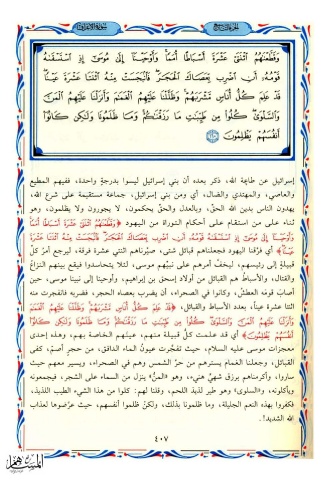 الجزء التاسع
سورة الأعراف
وَقَطَّعْنَاهُمُ اثْنَتَيْ عَشْرَةَ أَسْبَاطًا أُمَمًا وَأَوْحَيْنَا إِلَىٰ مُوسَىٰ إِذِ اسْتَسْقَاهُ
قَوْمُهُ أَنِ اضْرِب بِّعَصَاكَ الْحَجَرَ فَانبَجَسَتْ مِنْهُ اثْنَتَا عَشْرَةَ عَيْنًا
قَدْ عَلِمَ كُلُّ أُنَاسٍ مَّشْرَبَهُمْ وَظَلَّلْنَا عَلَيْهِمُ الْغَمَامَ وَأَنزَلْنَا عَلَيْهِمُ الْمَنَّ
وَالسَّلْوَىٰ كُلُوا مِن طَيِّبَاتِ مَا رَزَقْنَاكُمْ وَمَا ظَلَمُونَا وَلَٰكِن كَانُوا
أَنفُسَهُمْ يَظْلِمُونَ
إسرائيل عن طاعة الله، ذكر بعده أن بني إسرائيل ليسوا بدرجة واحدة، ففيهم المطيع
والعاصي، والمهتدي والضال، أي ومن بني إسرائيل، جماعة مستقيمة على شرع الله،
يهدون الناس بدين الله الحق، وبالعدل والحق يحكمون، لا يجورون ولا يظلمون، وهو
ثناء على من استقام على أحكام التوراة من اليهود ﴿وَقَطَّعْنَاهُمُ اثْنَتَيْ عَشْرَةَ أَسْبَاطًا أُمَمًا
وَأَوْحَيْنَا إِلَىٰ مُوسَىٰ إِذِ اسْتَسْقَاهُ قَوْمُهُ أَنِ اضْرِب بِّعَصَاكَ الْحَجَرَ فَانبَجَسَتْ مِنْهُ اثْنَتَا عَشْرَةَ
عَيْنًا﴾ أي فرّقنا اليهود فجعلناهم قبائل شتى، صيّرناهم اثنتي عشرة فرقة، ليرجع أمرُ كلّ
قبيلةٍ إلى رئيسهم، ليخفّ أمرهم على نبيّهم موسى، لئلا يتحاسدوا فيقع بينهم النزاعُ
والقتال، والأسباط هم القبائل من أولاد إسحق بن إبراهيم، وأوحينا إلى نبينا موسى، حين
أصاب قومه العطشُ، وكانوا في الصحراء، أن يضرب بعصاه الحجر، فضربه فانفجرت منه
اثنتا عشرة عيناً، بعدد الأسباط والقبائل، ﴿قَدْ عَلِمَ كُلُّ أُنَاسٍ مَّشْرَبَهُمْ وَظَلَّلْنَا عَلَيْهِمُ الْغَمَامَ
وَأَنزَلْنَا عَلَيْهِمُ الْمَنَّ وَالسَّلْوَىٰ كُلُوا مِن طَيِّبَاتِ مَا رَزَقْنَاكُمْ وَمَا ظَلَمُونَا وَلَٰكِن كَانُوا
أَنفُسَهُمْ يَظْلِمُونَ﴾ أي قد علمت كلّ قبيلة منهم، عينَهم الخاصة بهم، وهذه إحدى
معجزات موسى عليه السلام، حيث تفجّرت عيونُ الماء الدافق، من حجرٍ أصمّ، كفى
القبائل، وجعلنا الغمام يسترهم من حرّ الشمس وهم في الصحراء، ويسير معهم حيث
ساروا، وأكرمناهم برزق شهيّ هنيء، وهو «المنّ» ينزل من السماء على الشجر، فيجمعونه
ويأكلونه، و«السلوى» وهو طير لذيذ اللحم، وقلنا لهم: كلوا من هذا الشيء الطيب اللذيذ،
فكفروا بهذه النعم الجليلة، وما ظلمونا بذلك، ولكنْ ظلموا أنفسهم، حيث عرّضوها لعذاب
الله الشديد!.
٤٠٧